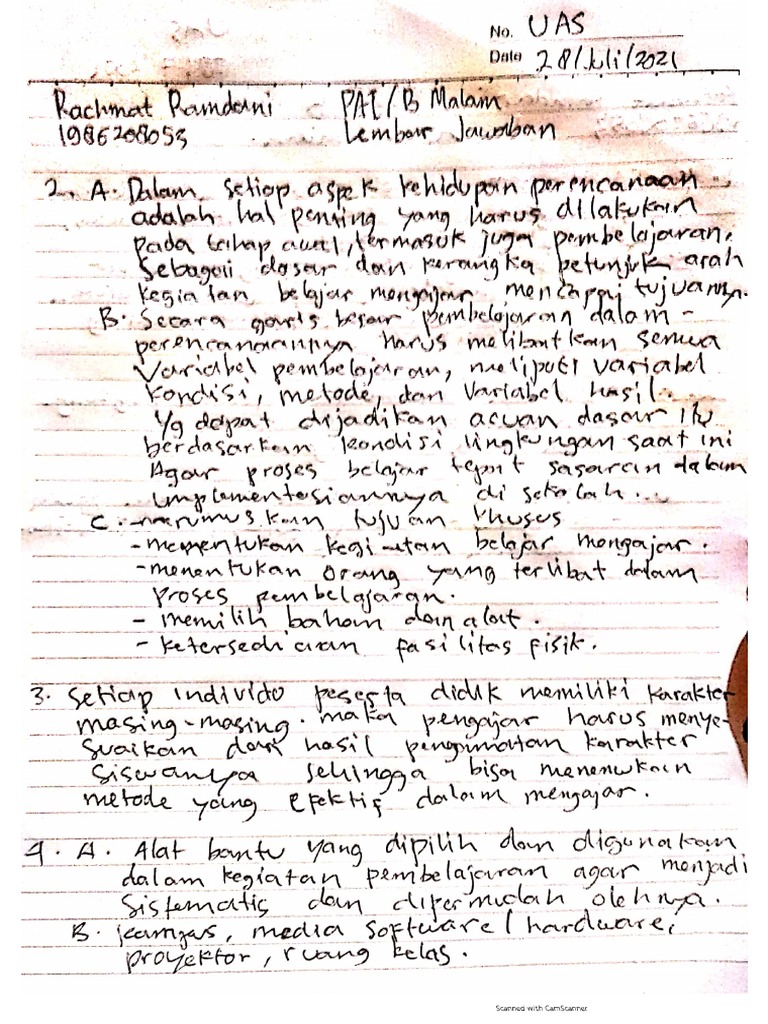 No. UAS
Date 28/Juli/2021
Rachmat Ramdani PAI/B Malam
1986208053 Lembar Jawaban
2. A. Dalam setiap aspek kehidupan perencanaan
adalah hal penting yang harus dilakukan
pada tahap awal, termasuk juga pembelajaran.
Sebagai dasar dan kerangka petunjuk arah
kegiatan belajar mengajar mencapai tujuannya.
B. Secara garis besar pembelajaran dalam -
perencanaannya harus melibatkan semua
Variabel pembelajaran, meliputi variabel
kondisi, metode, dan variabel hasil.
Yg dapat dijadikan acuan dasar itu
berdasarkan kondisi lingkungan saat ini
Agar proses belajar tepat sasaran dalam
implementasiannya di sekolah...
C. -merumuskan tujuan khusus
-menentukan kegiatan belajar mengajar.
-menentukan orang yang terlibat dalam
proses pembelajaran.
- memilih bahan dan alat.
- ketersediaan fasilitas fisik.
3. Setiap individo peserta didik memiliki karakter
masing-masing. maka pengajar harus menye-
suaikan dari hasil pengamatan karakter
siswanya sehingga bisa menemukan
metode yang efektif dalam mengajar.
4. A. Alat bantu yang dipilih dan digunakan
dalam kegiatan pembelajaran agar menjadi
sistematis dan dipermudah olehnya.
B. media software/hardware,
proyektor, ruang kelas.
Scanned with CamScanner